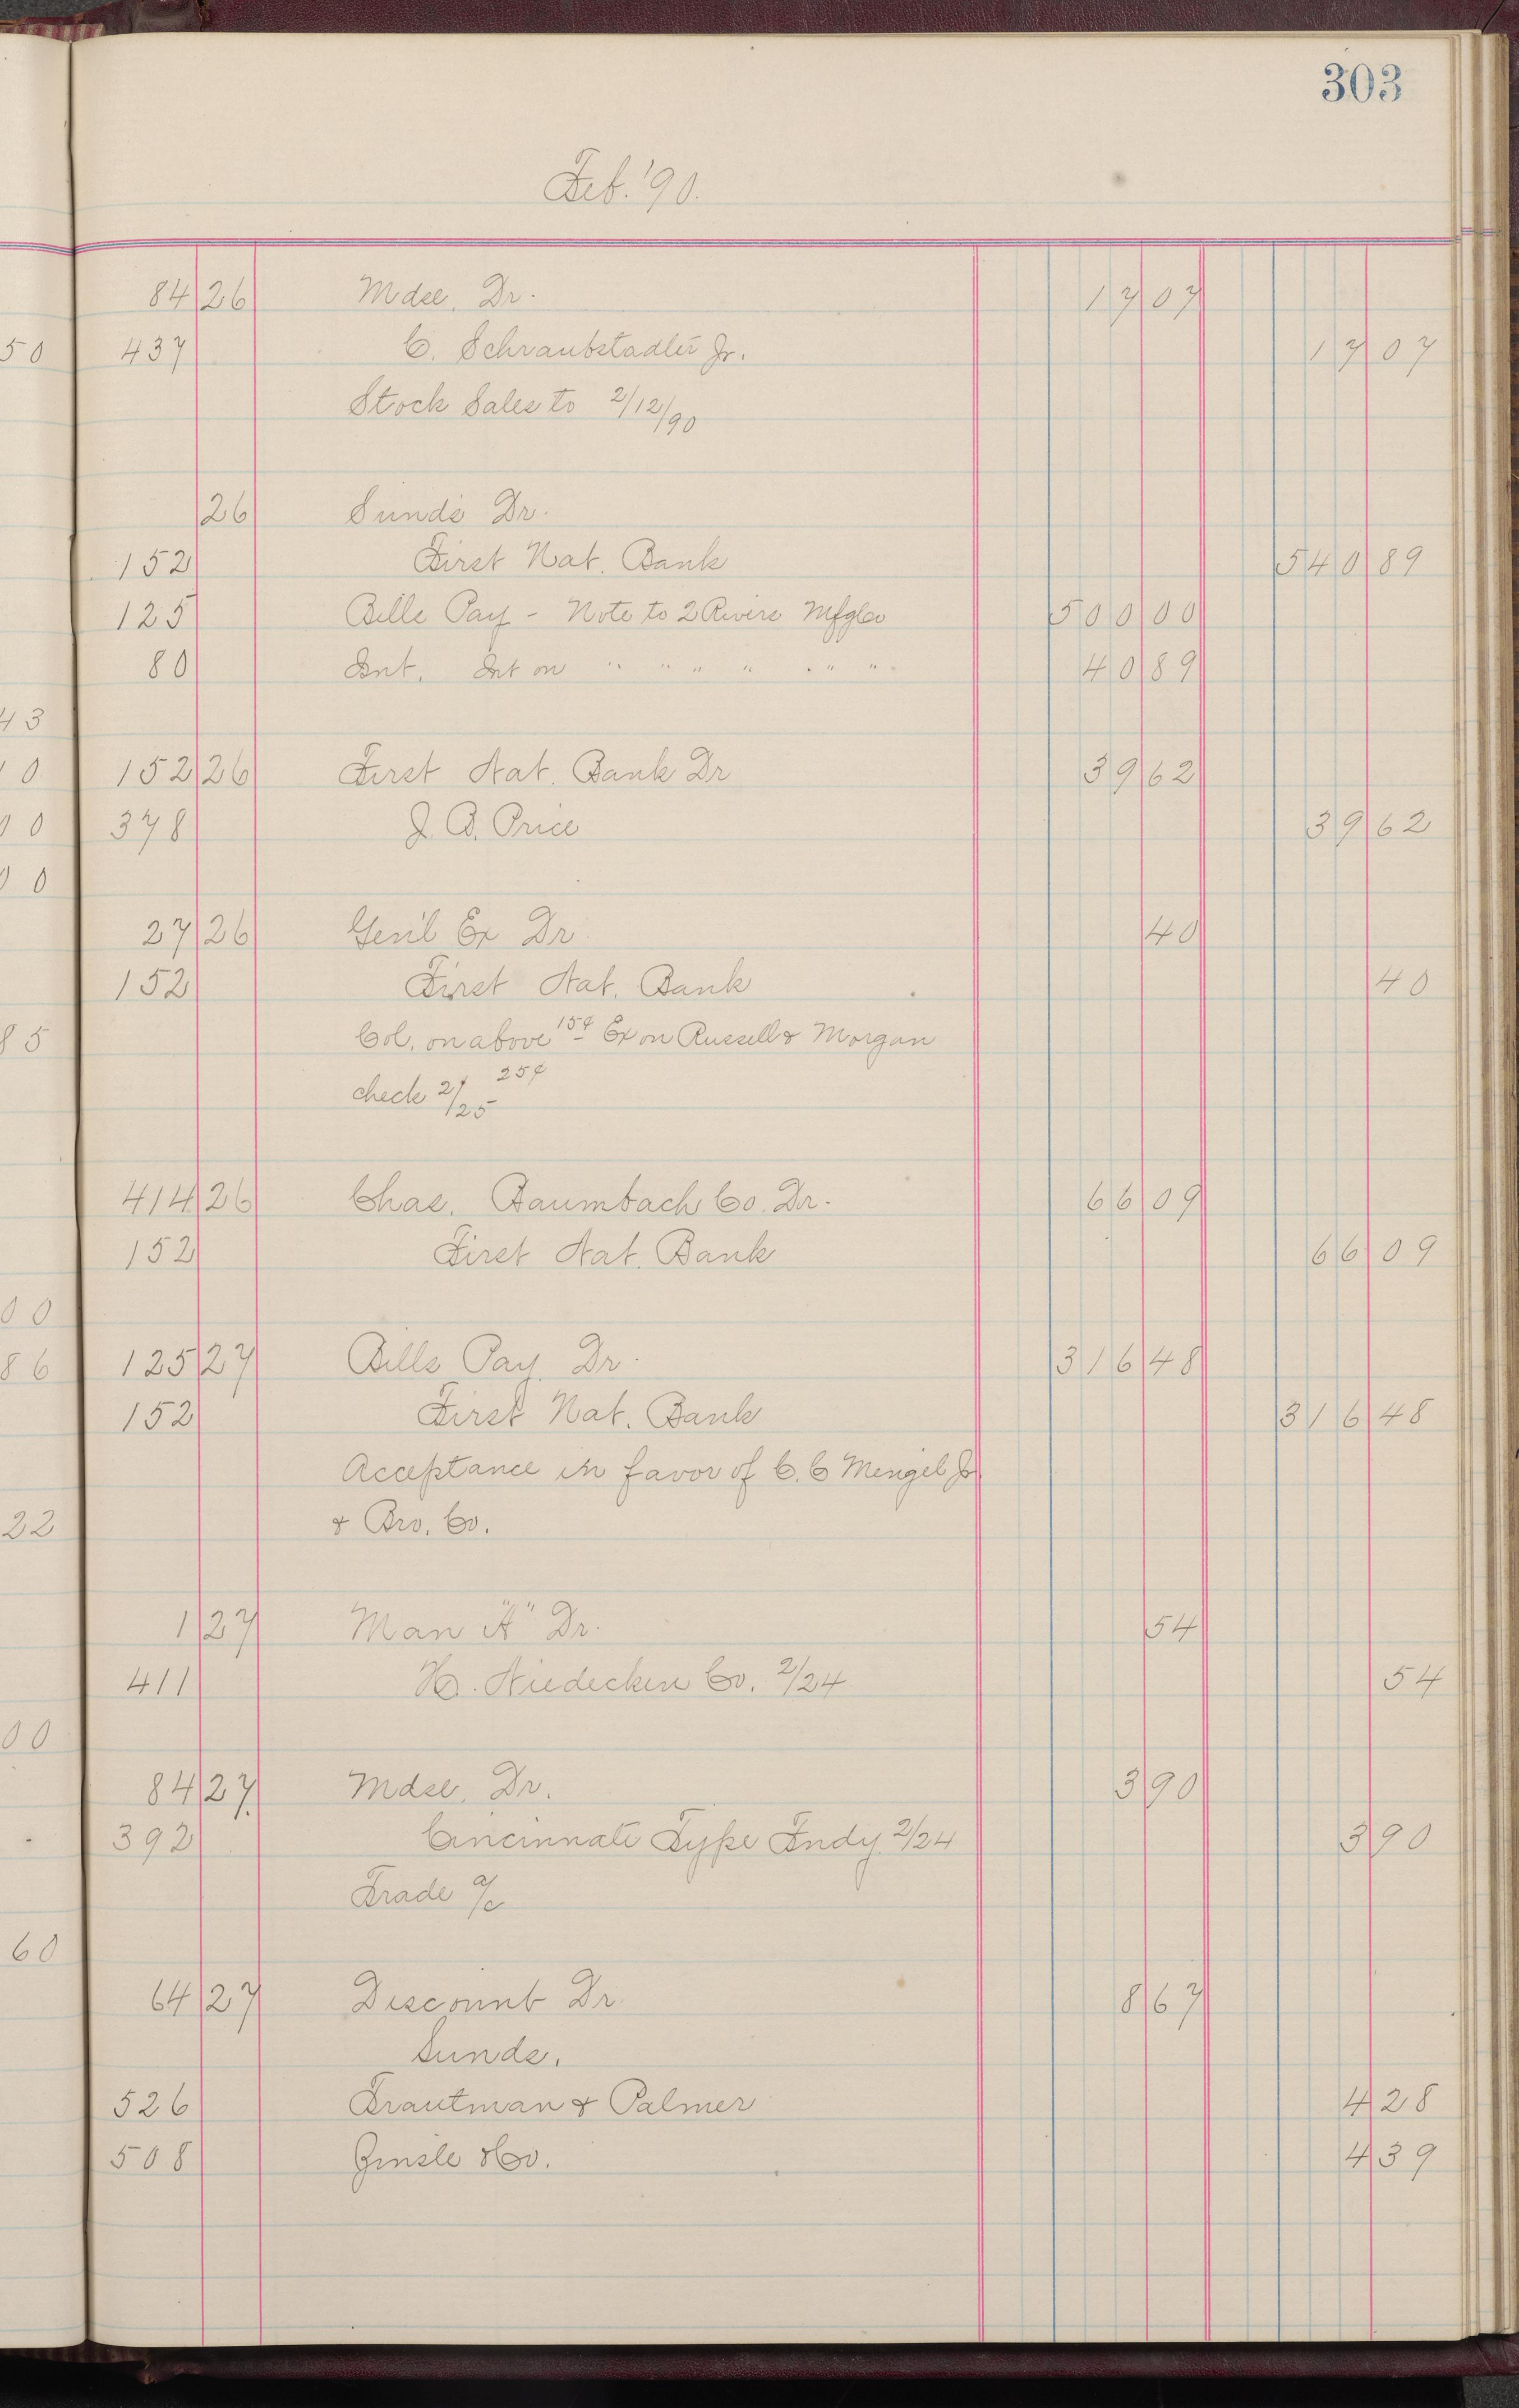 303
Feb. '90.
84 26 Mdse. Dr. 17 07
50 437 C. Schraubstadter Jr. 17 07
Stock Sales to 2/12/90
26 Sunds Dr.
152 First Nat. Bank 540 89
125 Bills Pay - Note to 2 Rivers Mfg Co 500 00
80 Int. Int on " " " " " " 40 89
43
0 152 26 First Nat. Bank Dr 39 62
00 378 J. B. Price 39 62
00
27 26 Gen'l Ex Dr 40
152 First Nat. Bank 40
85 Col. on above 15¢ - Ex on Russell & Morgan
check 2/25 25¢
414 26 Chas. Baumbach Co. Dr. 66 09
152 First Nat. Bank 66 09
00
86 125 27 Bills Pay. Dr. 316 48
152 First Nat. Bank 316 48
Acceptance in favor of C. C Mengel Jr
22 & Bro. Co.
1 27 Man "A" Dr. 54
411 H. Niedecken Co. 2/24 54
00
84 27 Mdse. Dr. 3 90
392 Cincinnati Type Fndy. 2/24 3 90
Trade a/c
60
64 27 Discount Dr. 8 67
Sunds.
526 Trautman & Palmer 4 28
508 & Co. 4 39